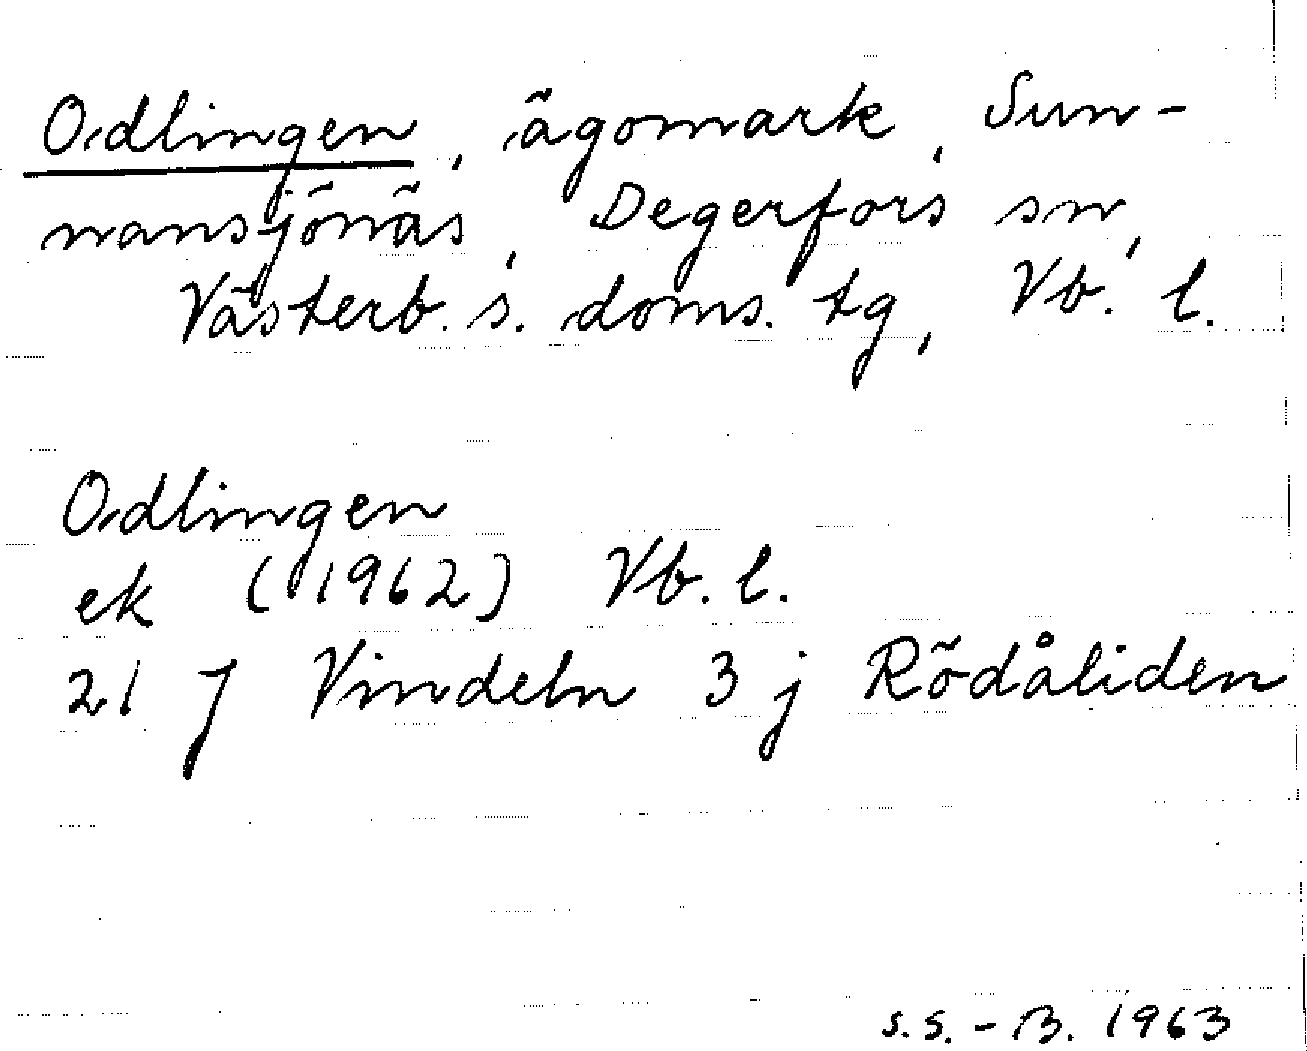 Odlingen, ägomark, Sun-
nansjönäs, Degerfors sn,
Västerb. s. doms. tg, Vb. l.
Odlingen
ek (1962) Vb. l.
21 J Vindeln 3 j Rödåliden
S.S.-B. 1963